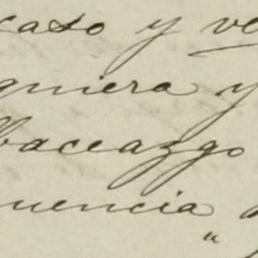 caso y ve
quiera y
lbaceazgo
uencia